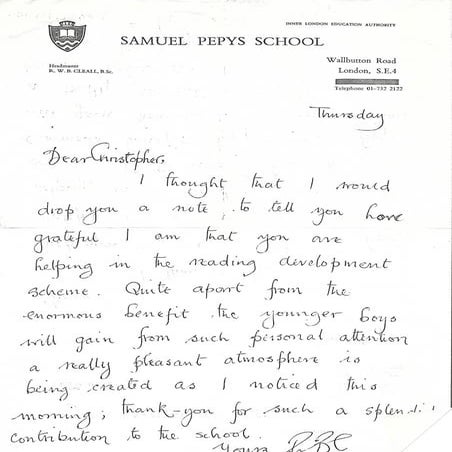 INNER LONDON EDUCATION AUTHORITY
SAMUEL PEPYS SCHOOL
Headmaster
R. W. B. CLEALL, B.Sc.
Wallbutton Road
London, S.E.4
Telephone 01-732 2122
Thursday
Dear Christopher,
I thought that I would
drop you a note, to tell you how
grateful I am that you are
helping in the reading development
scheme. Quite apart from the
enormous benefit the younger boys
will gain from such personal attention
a really pleasant atmosphere is
being created as I noticed this
morning; thank-you for such a splendid
contribution to the school.
Yours